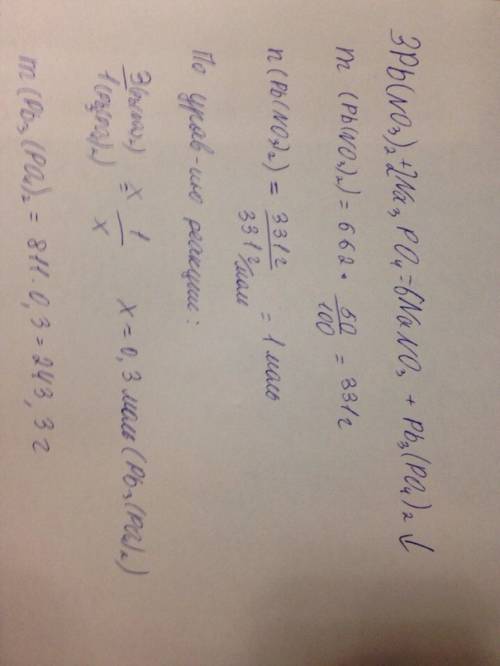 3Pb(NO₃)₂+2Na₃PO₄=6NaNO₃ + Pb₃(PO₄)₂↓
m (Pb(NO₃)₂) = 662 · 50/100 = 331г
n (Pb(NO₃)₂) = 331г/331г/моль = 1 моль
По урав-ию реакции:
3 = 1/x x = 0,3 моль (Pb₃(PO₄)₂)
m (Pb₃(PO₄)₂ = 811 · 0,3 = 243,3 г